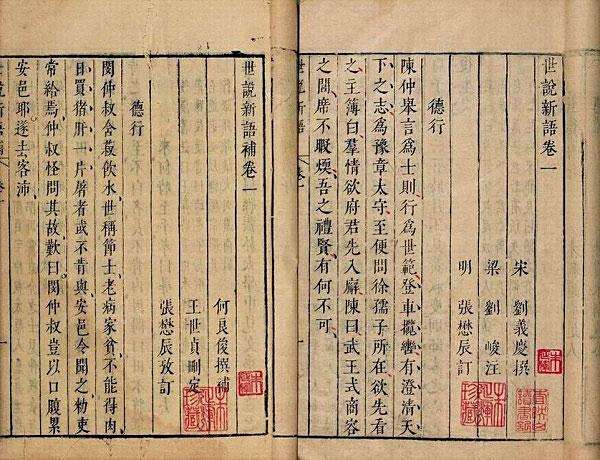 世說新語卷一
宋 劉義慶撰
梁 劉峻注
明 張懋辰訂
德行
陳仲舉言爲士則行爲世範登車攬轡有澄清天
下之志爲豫章太守至便問徐孺子所在欲先看
之主簿曰羣情欲府君先入廨陳曰武王式商容
之閭席不暇煖吾之禮賢有何不可
世說新語 卷一
世說新語補卷一
何良俊撰補
王世貞刪定
張懋辰攷訂
德行
閔仲叔舍菽飲水世稱節士老病家貧不能得肉
日買猪肝一片屠者或不肯與安邑令聞之勑吏
常給焉仲叔怪問其故歎曰閔仲叔豈以口腹累
安邑耶遂去客沛
世說新語補 卷一